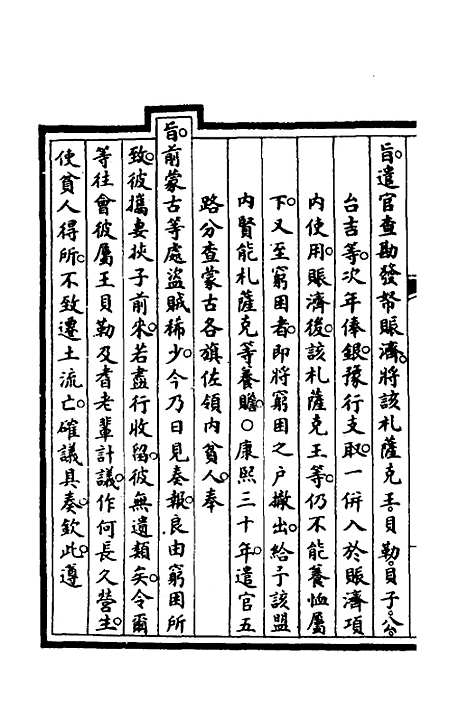 旨。遣官查勘發帑賑濟。將該札薩克王。貝勒。貝子。公。
台吉等。次年俸銀。豫行支取。一併入於賑濟項
內使用。賑濟後。該札薩克王等。仍不能養恤屬
下。又至窮困者。即將窮困之戶撤出。給予該盟
內賢能札薩克等養贍。○康熙三十年。遣官五
路分查蒙古各旗佐領內貧人。奉
旨。前蒙古等處盜賊稀少。今乃日見奏報。良由窮困所
致。彼攜妻挾子前來。若盡行收留。彼無遺類矣。今爾
等往會彼屬王貝勒及耆老輩計議。作何長久營生。
使貧人得所。不致遷土流亡。確議具奏。欽此。遵